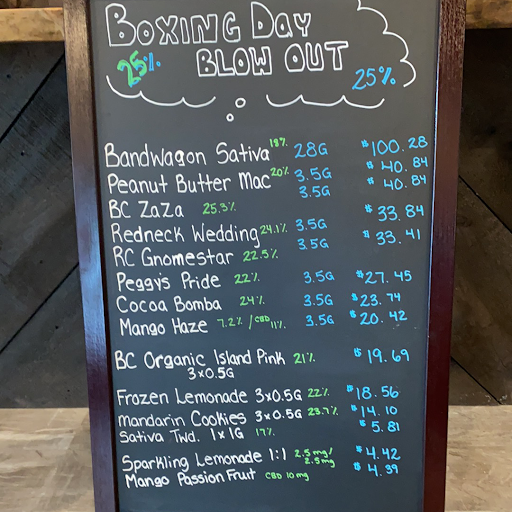 Boxing Day
Blow Out
25% 25%
Bandwagon Sativa 18% 28G $100.28
Peanut Butter Mac 20% 3.5G $40.84
BC Zaza 25.3% 3.5G $40.84
Redneck Wedding 24.1% 3.5G $33.84
RC Gnomestar 22.5% 3.5G $33.41
Peggys Pride 22% 3.5G $27.45
Cocoa Bomba 24% 3.5G $23.74
Mango Haze 7.2% / CBD 11% 3.5G $20.42
BC Organic Island Pink 21% $19.69
3x0.5G
Frozen Lemonade 3x0.5G 22% $18.56
Mandarin Cookies 3x0.5G 23.7% $14.10
Sativa Twd. 1x1G 17% $5.81
Sparkling Lemonade 1:1 2.5mg/ 2.5mg $4.42
Mango Passion Fruit CBD 10mg $4.39